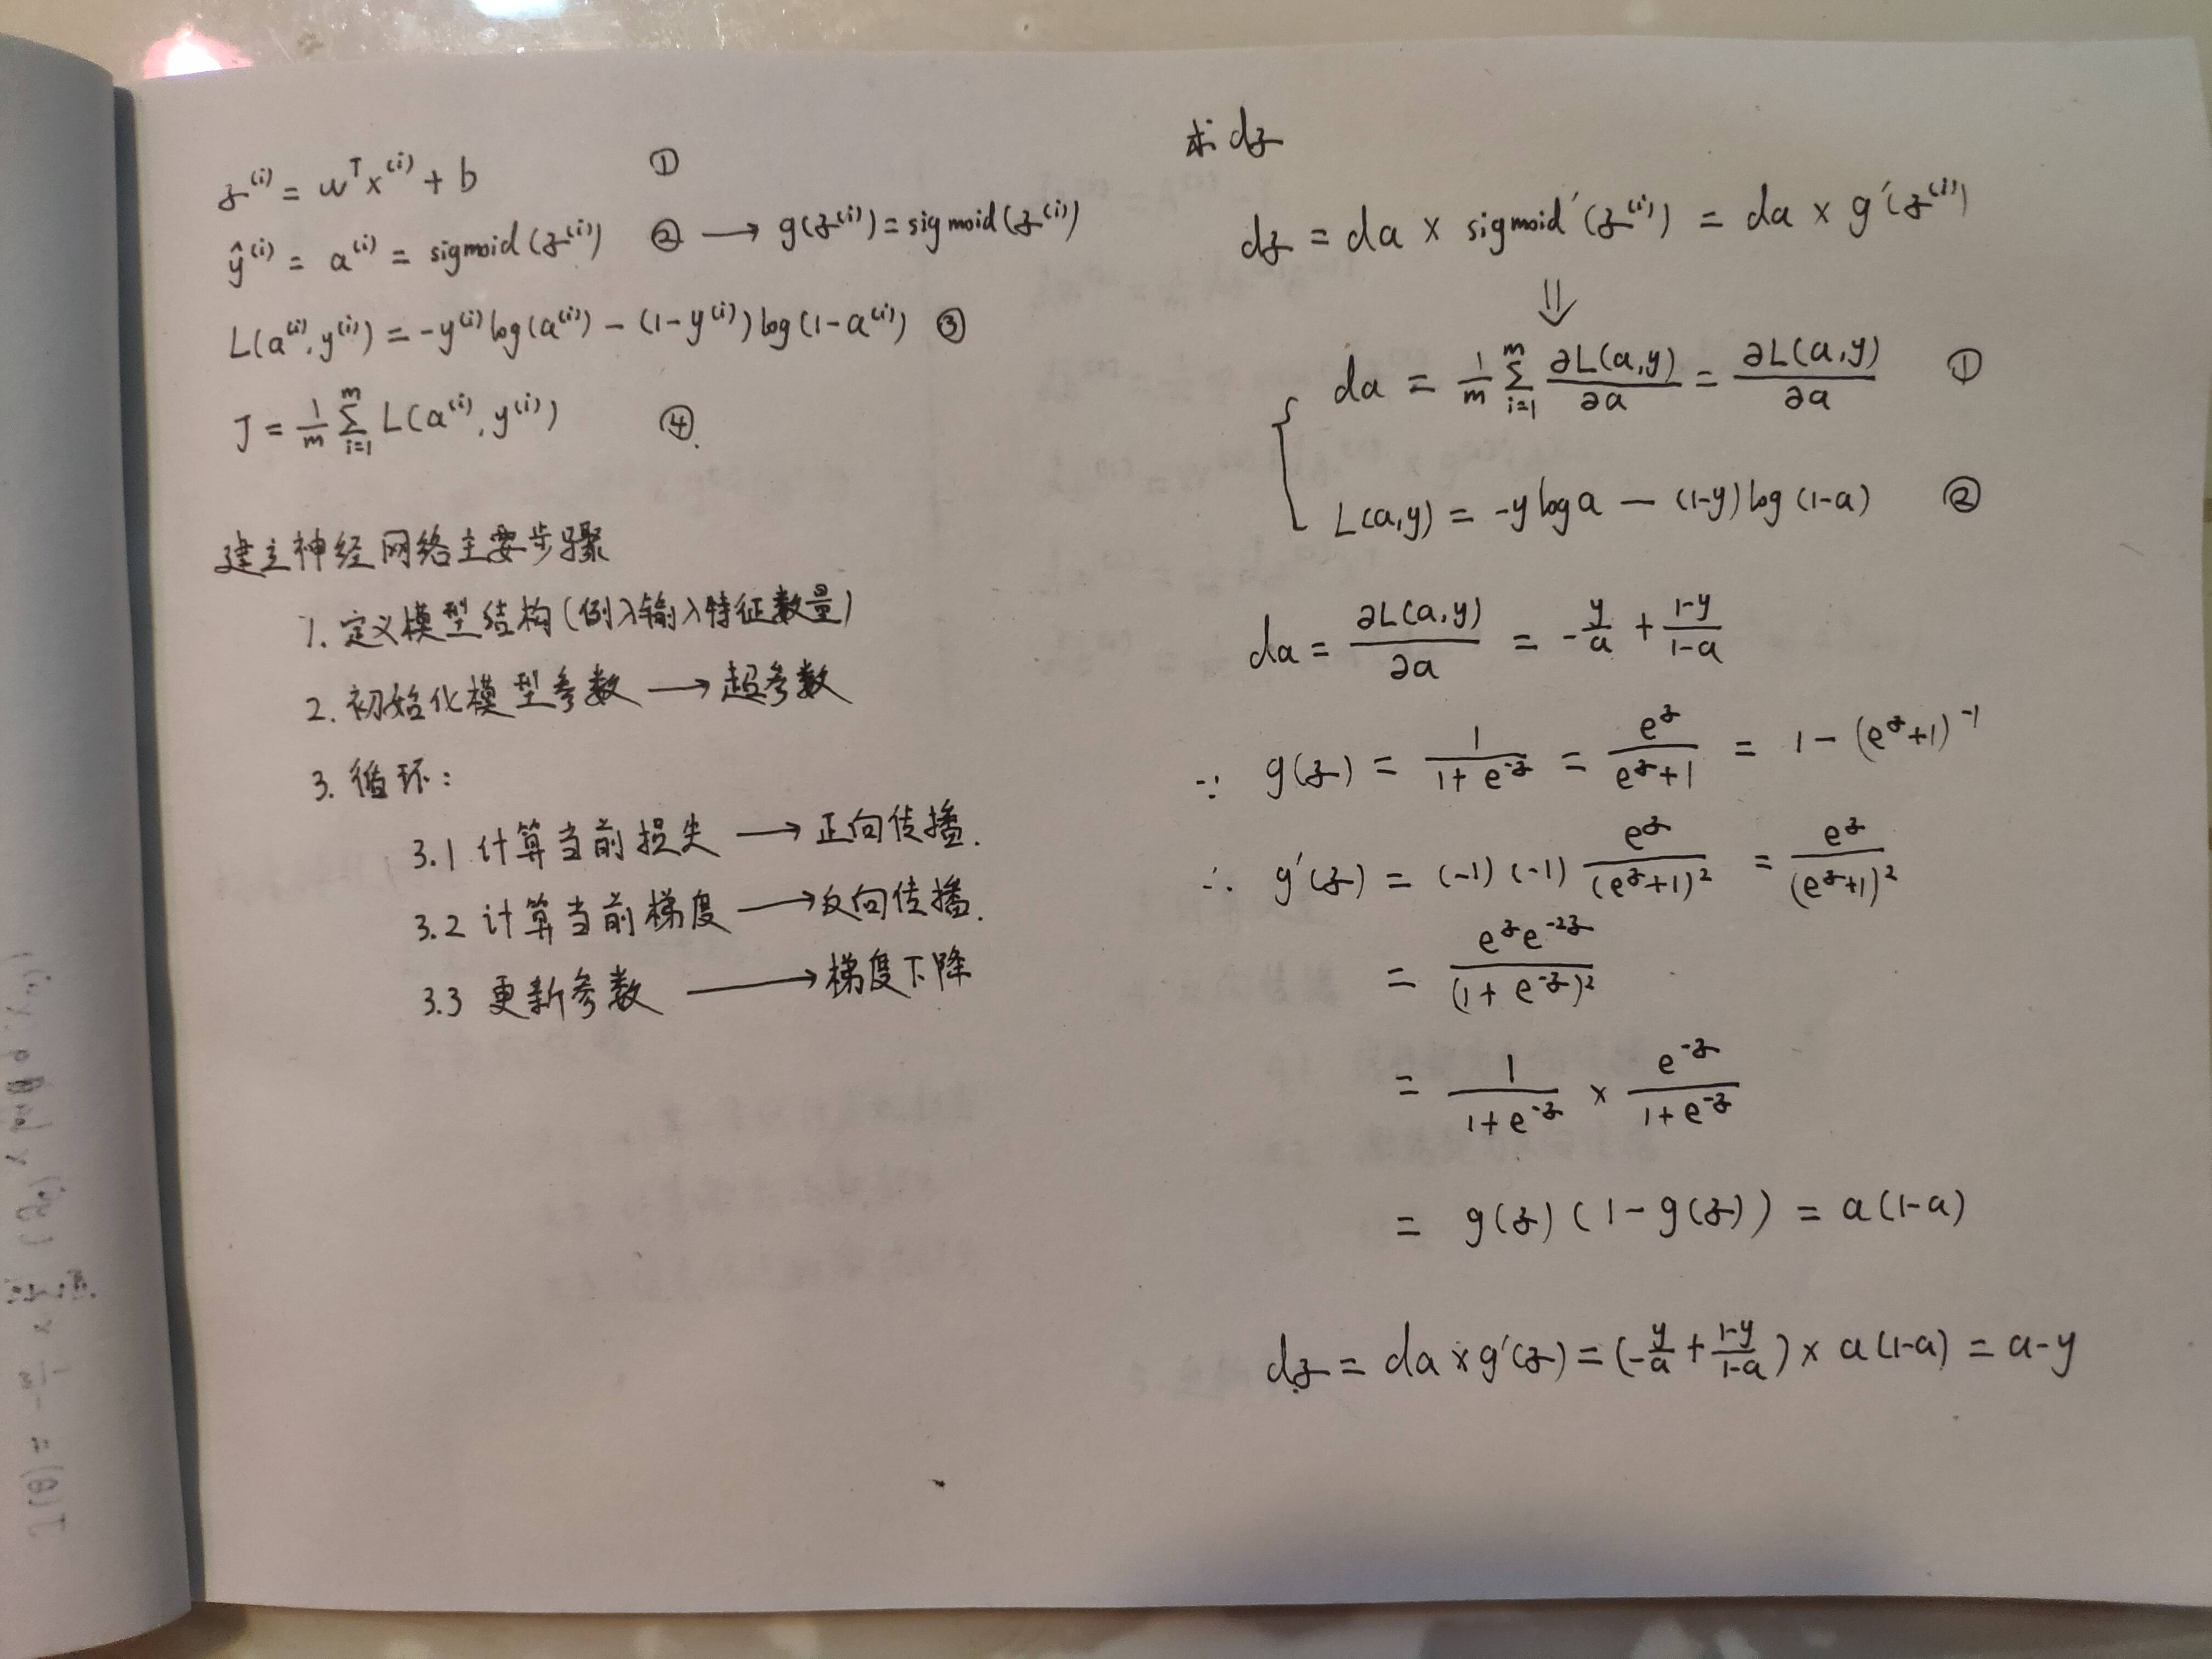 z⁽ⁱ⁾ = wᵀx⁽ⁱ⁾ + b ①
ŷ⁽ⁱ⁾ = a⁽ⁱ⁾ = sigmoid(z⁽ⁱ⁾) ② → g(z⁽ⁱ⁾) = sigmoid(z⁽ⁱ⁾)
L(a⁽ⁱ⁾, y⁽ⁱ⁾) = -y⁽ⁱ⁾log(a⁽ⁱ⁾) - (1-y⁽ⁱ⁾)log(1-a⁽ⁱ⁾) ③
J = 1/m Σᵢ₌₁ᵐ L(a⁽ⁱ⁾, y⁽ⁱ⁾) ④.
建立神经网络主要步骤
1. 定义模型结构(例入输入特征数量)
2. 初始化模型参数 → 超参数
3. 循环:
3.1 计算当前损失 → 正向传播.
3.2 计算当前梯度 → 反向传播.
3.3 更新参数 → 梯度下降
求dz
dz = da × sigmoid′(z⁽ⁱ⁾) = da × g′(z⁽ⁱ⁾)
⇓
da = 1/m Σᵢ₌₁ᵐ ∂L(a,y)/∂a = ∂L(a,y)/∂a ①
L(a,y) = -y log a - (1-y) log (1-a) ②
da = ∂L(a,y)/∂a = -y/a + (1-y)/(1-a)
∵ g(z) = 1/(1+e⁻ᶻ) = eᶻ/(eᶻ+1) = 1-(eᶻ+1)⁻¹
∴ g′(z) = (-1)(-1) eᶻ/(eᶻ+1)² = eᶻ/(eᶻ+1)²
= eᶻe⁻²ᶻ/(1+e⁻ᶻ)²
= 1/(1+e⁻ᶻ) × e⁻ᶻ/(1+e⁻ᶻ)
= g(z)(1-g(z)) = a(1-a)
dz = da × g′(z) = (-y/a + (1-y)/(1-a)) × a(1-a) = a-y